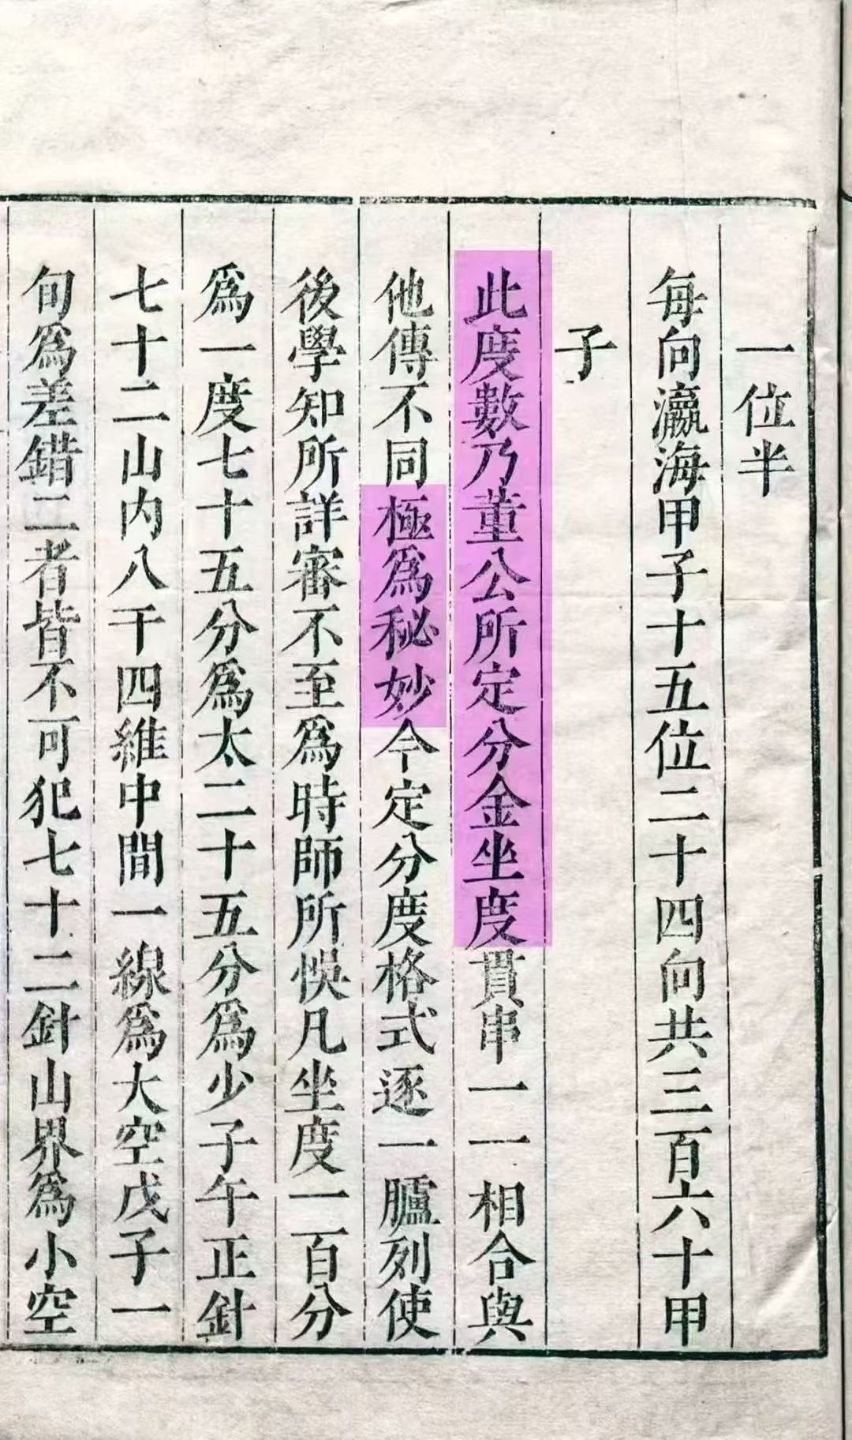 一位半
每向瀛海甲子十五位二十四向共三百六十甲
子
此度數乃董公所定分金坐度貫串一一相合與
他傳不同極爲秘妙今定分度格式逐一臚列使
後學知所詳審不至爲時師所悞凡坐度一百分
爲一度七十五分爲太二十五分爲少子午正針
七十二山內八干四維中間一線爲大空戊子一
旬爲差錯二者皆不可犯七十二針山界爲小空